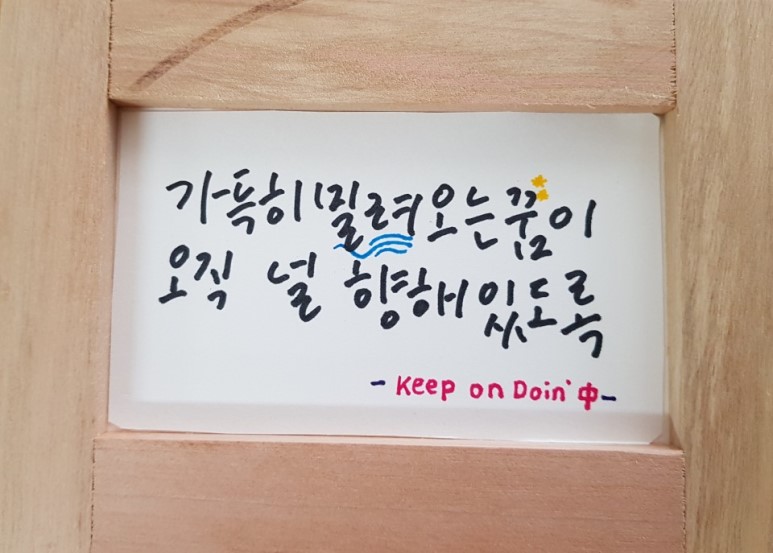 가득히 밀려오는 꿈이
오직 널 향해 있도록
- Keep on Doin' 中-